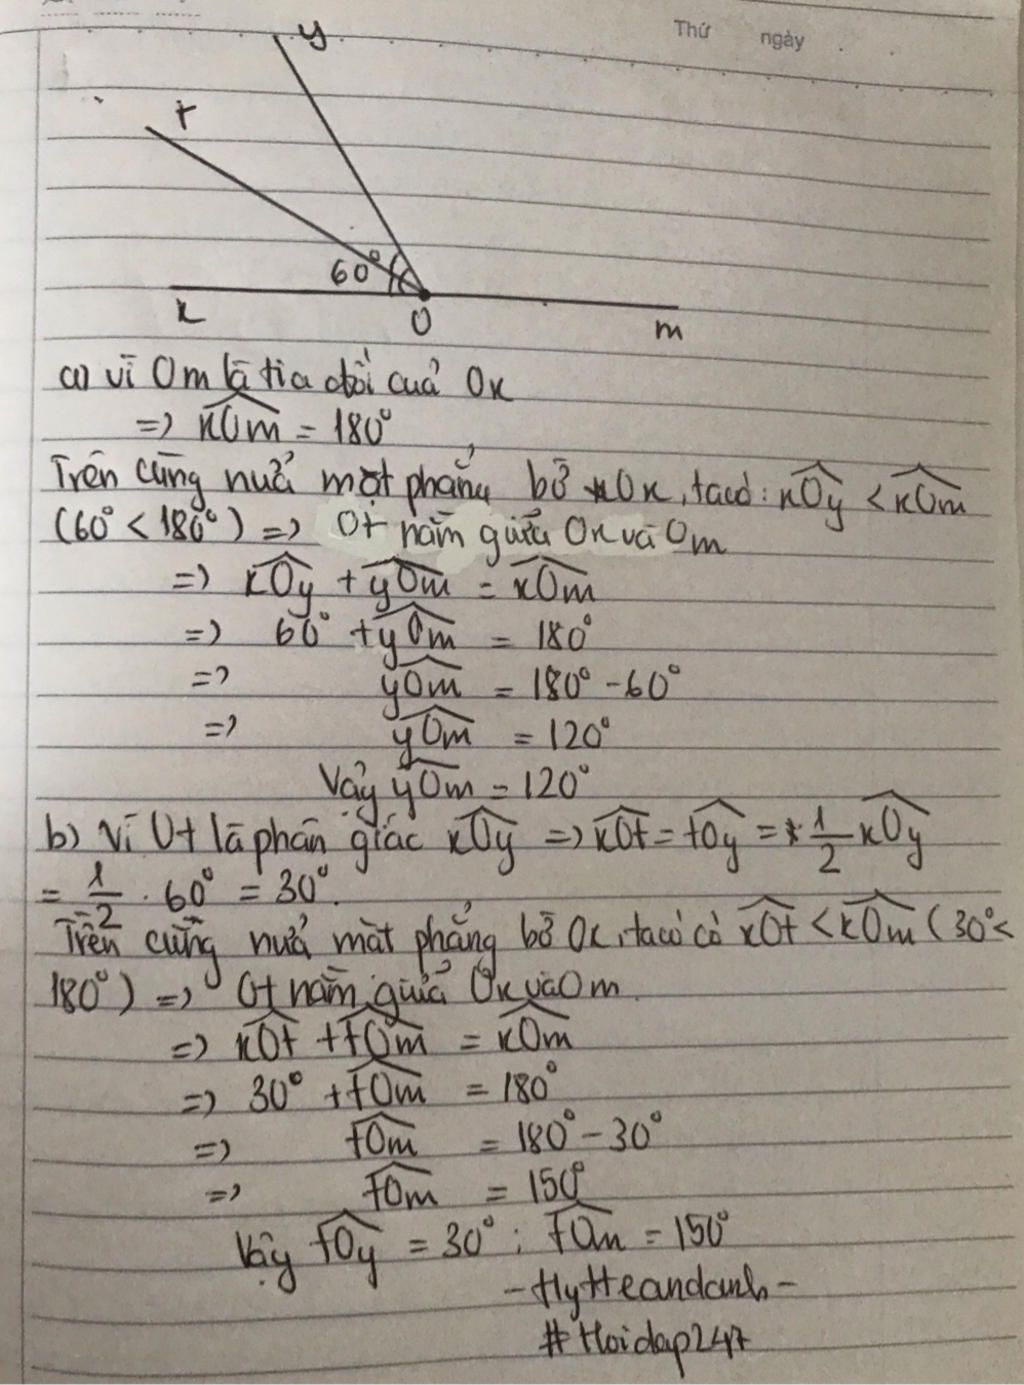 Thứ ngày
y
t
60°
x
O
m
a) vì Om là tia đối của Ox
=> xOm = 180°
Trên cùng nửa mặt phẳng bờ Ox, ta có: xOy < xOm
(60° < 180°) => Ot nằm giữa Ox và Om
=> xOy + yOm = xOm
=> 60° + yOm = 180°
=> yOm = 180° - 60°
=> yOm = 120°
Vậy yOm = 120°
b) Vì Ot là phân giác xOy => xOt = tOy = 1/2 xOy
= 1/2 . 60° = 30°.
Trên cùng nửa mặt phẳng bờ Ox, ta có có xOt < xOm (30° <
180°) => Ot nằm giữa Ox và Om.
=> xOt + tOm = xOm
=> 30° + tOm = 180°
=> tOm = 180° - 30°
=> tOm = 150°
Vậy tOy = 30° ; tOm = 150°
- HyHeandanh -
#Hoidap247